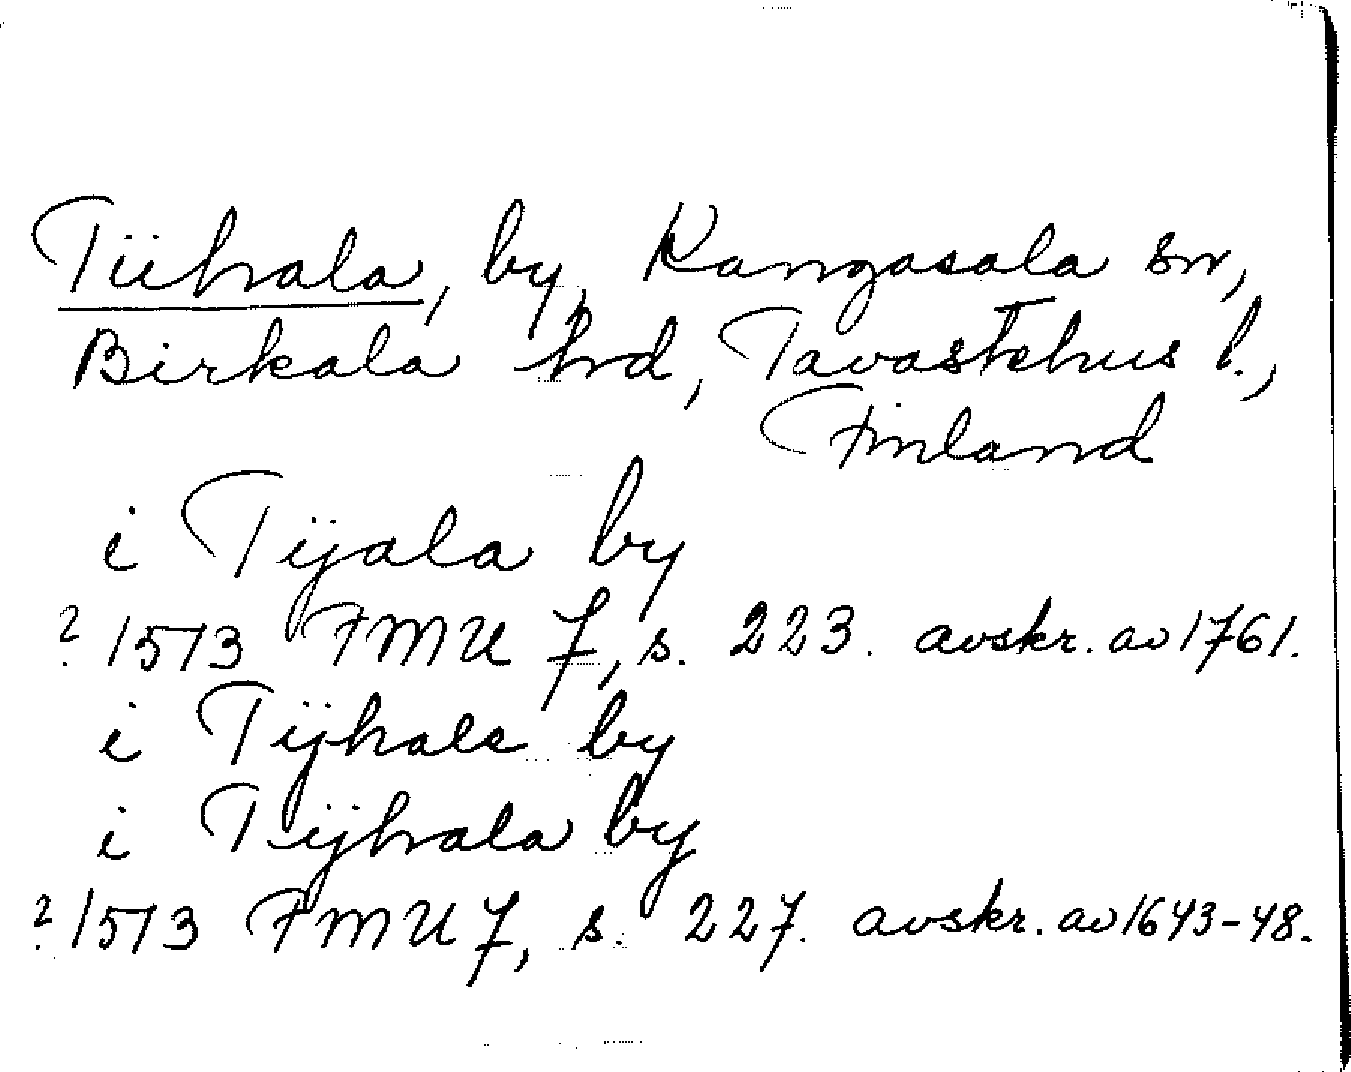 Tiihala, by, Kangasala sn,
Birkala hrd, Tavastehus l.,
Finland
i Tijala by
? 1513 FMU 7, s. 223. avskr. av 1761.
i Tijhale by
i Tijhala by
? 1513 FMU 7, s. 227. avskr. av 1643-48.